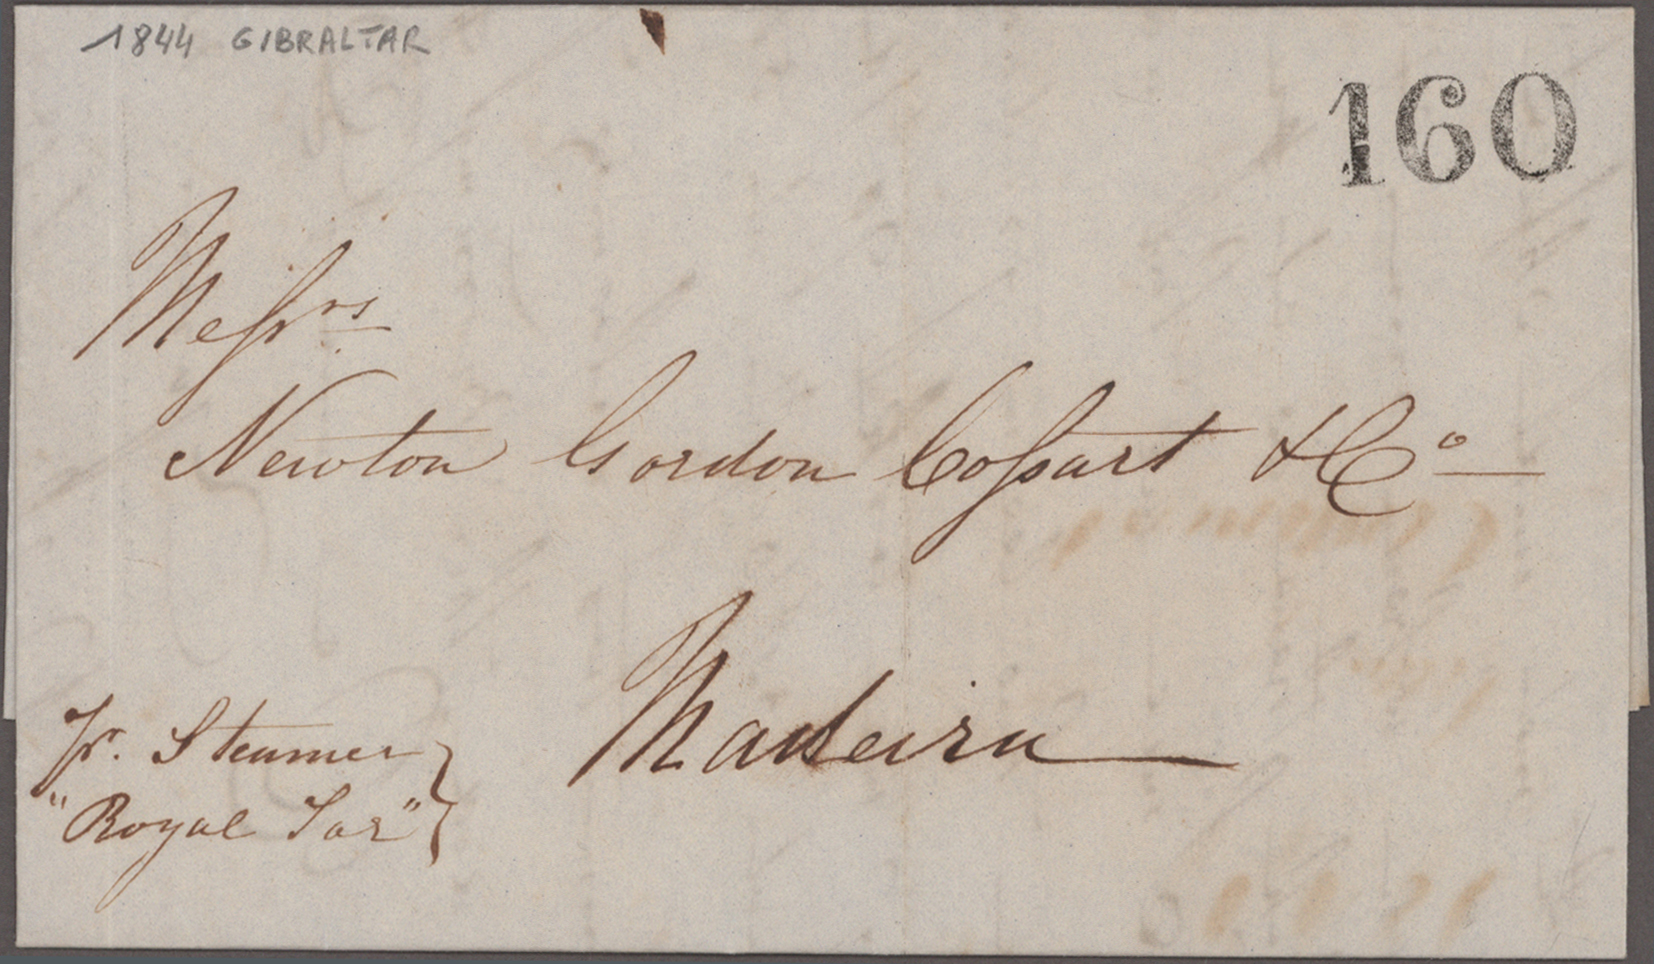 1844 GIBRALTAR
160
Messrs
Newton Gordon Cossart & Co
Madeira
Pr. Steamer
"Royal Tar"